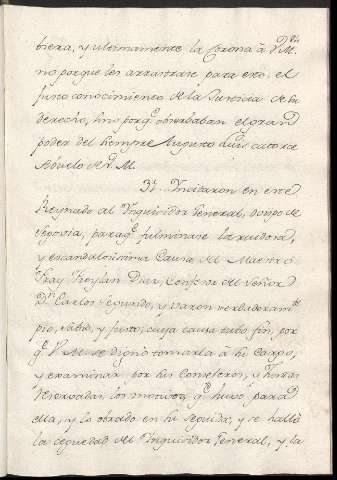 biera, y ultimamente la Corona à V. M.
no porque les arrastrase para esto, el
justo conocimiento de la Justicia de su
derecho, sino porq.e observaban el gran
poder del siempre Augusto Luis catorce
Abuelo de V. M.
31. Incitaron en este
Reynado al Inquisidor General, Obispo de
Segovia, para q.e fulminase la ruidosa,
y escandalosisima Causa del Maestro
Fray Froylan Diaz, Confesor del Señor
D.n Carlos Segundo, y varon verdaderam.te
pio, sabio, y justo, cuya causa tubo fin, por
q.e V. M. se dignò tomarla à su cargo,
y examinar por sus Consejeros, y Juntas
reservadas, los motivos q.e huvo para
ella, y lo obrado en su seguida, y se hallò
la ceguedad del Inquisidor General, y la